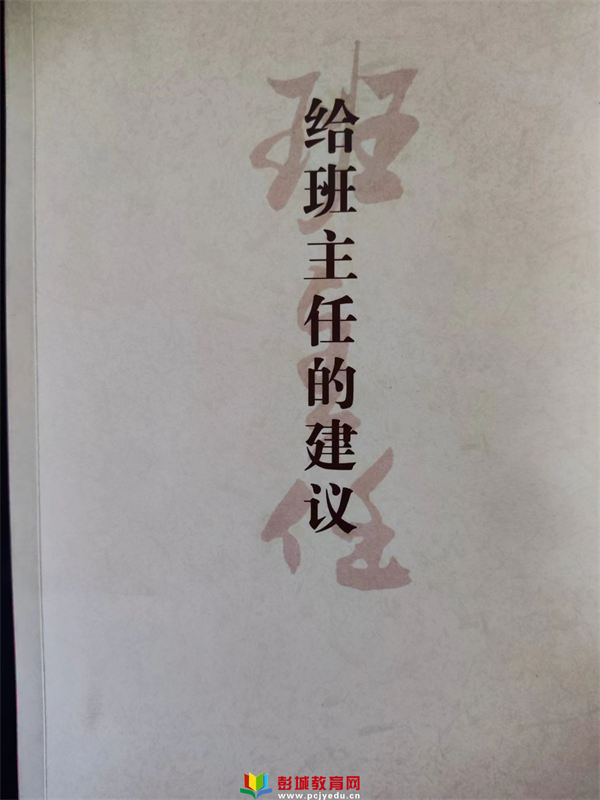 给班主任的建议
班主任
彭城教育网
www.pcjyedu.cn